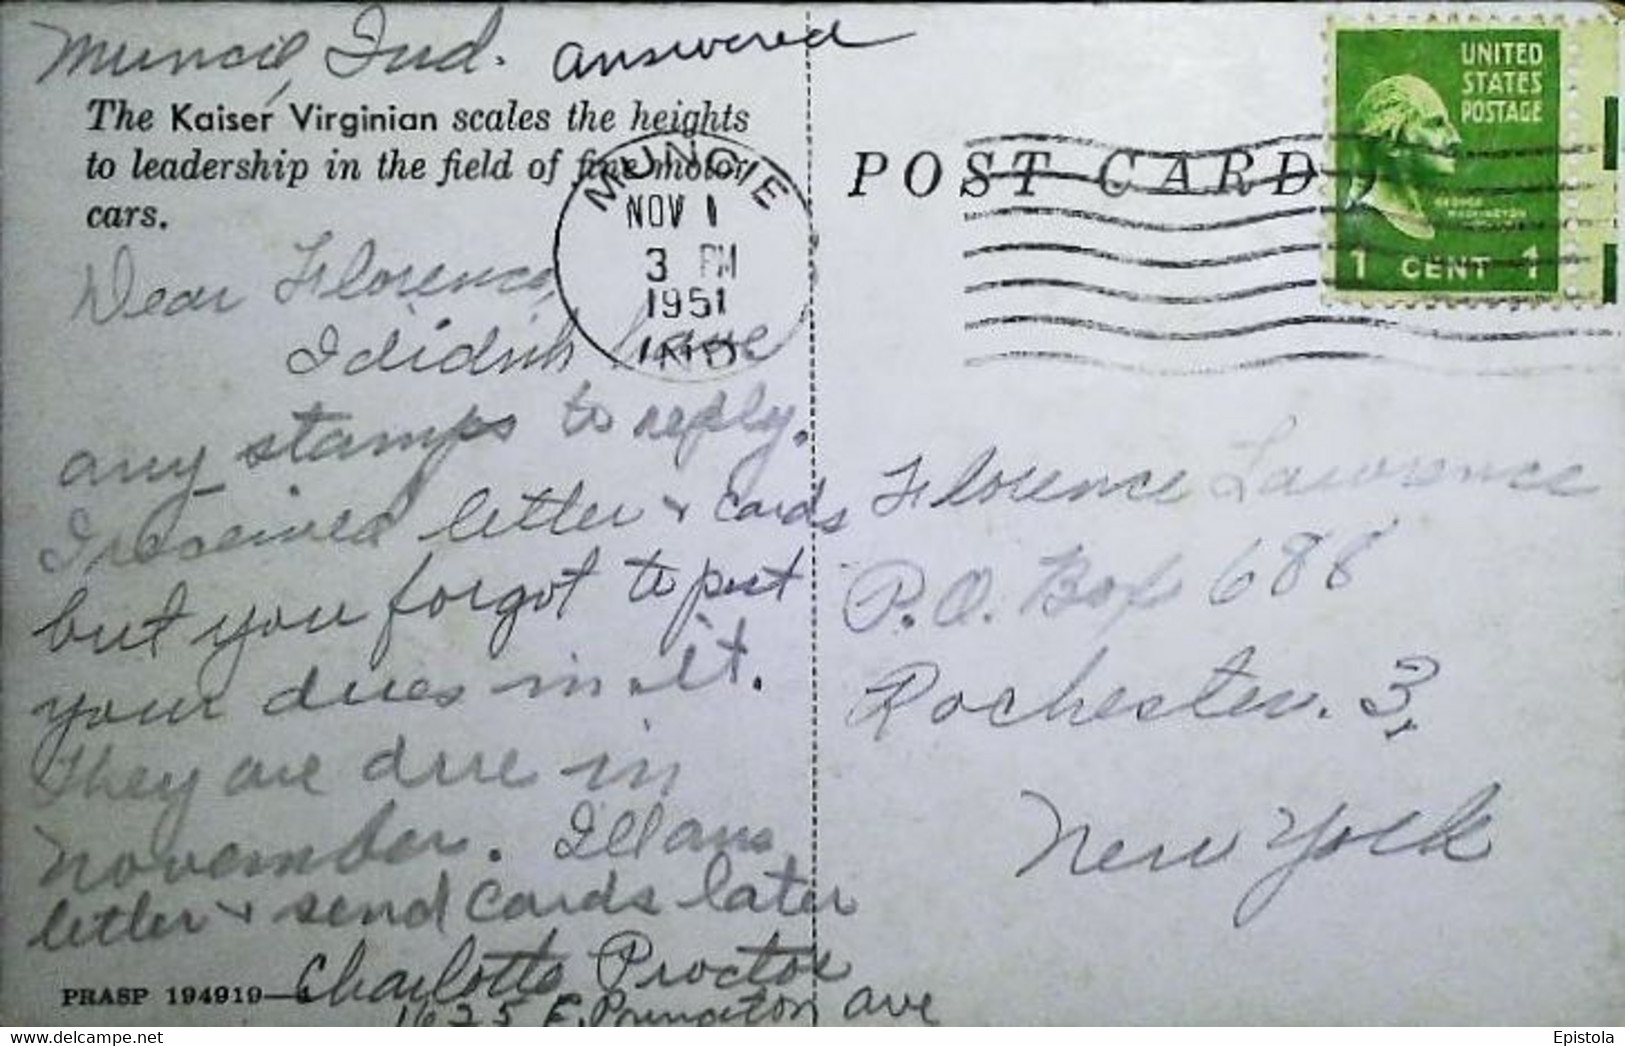 Muncie, Ind. answered
The Kaiser Virginian scales the heights
to leadership in the field of fine motor
cars.
MUNCIE
NOV 1
3 PM
1951
IND.
Dear Florence,
I didnt have
any stamps to reply.
I received letter + cards
but you forgot to put
your dues in it.
They are due in
November. Ill ans
letter + send cards later
Charlotte Proctor
1625 E. Princeton Ave
PRASP 194919—
POST CARD
UNITED
STATES
POSTAGE
GEORGE
WASHINGTON
1 CENT 1
Florence Lawrence
P.O. Box 688
Rochester. 3,
New York
delcampe.net
Epistola